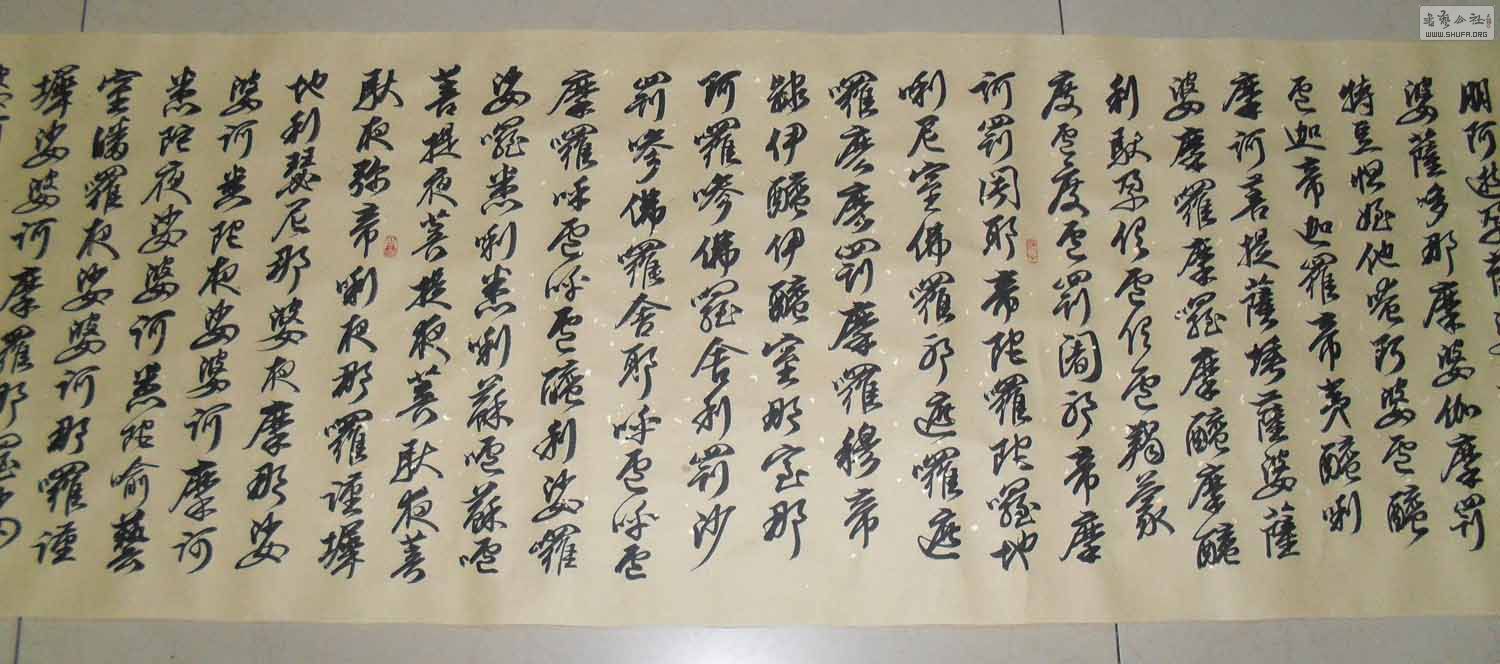 朋阿逝孕薩
婆薩哆那摩婆伽摩罰
特豆怛姪他唵阿婆盧醯
盧迦帝迦羅帝夷醯唎
摩訶菩提薩埵薩婆薩
婆摩羅摩囉摩醯摩醯
利馱孕俱盧俱盧羯蒙
度盧度盧罰闍耶帝摩
訶罰闍耶帝陀羅陀囉地
唎尼室佛羅耶遮囉遮
囉麼麼罰摩羅穆帝
隸伊醯伊醯室那室那
阿囉嘇佛囉舍利罰沙
罰嘇佛羅舍耶呼盧呼盧
摩羅呼盧呼盧醯利娑羅
娑囉悉唎悉唎蘇嚧蘇嚧
菩提夜菩提夜菩馱夜菩
馱夜弥帝唎夜那羅謹墀
地利瑟尼那婆夜摩那娑
婆訶悉陀夜娑婆訶摩訶
悉陀夜娑婆訶悉陀喻藝
室皤羅夜娑婆訶那羅謹
墀娑婆訶摩羅那囉
WWW.SHUFA.ORG